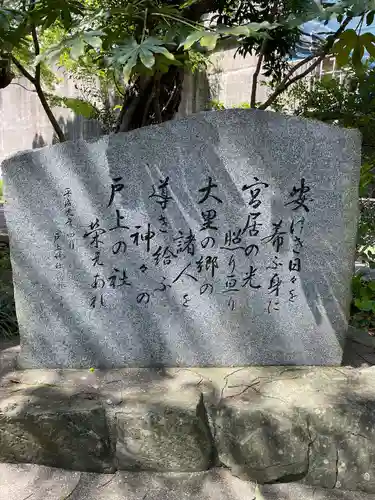 安けき日々を
希ふ身に
宮居の光
照り亘り
大里の郷の
諸人を
導き給ふ
神々の
戸上の社
栄えあれ